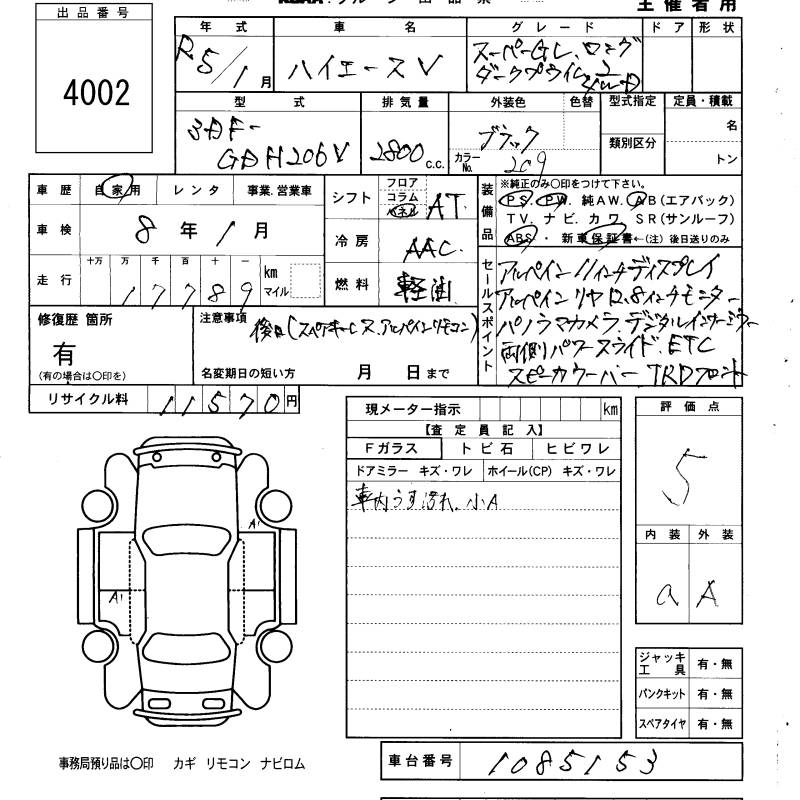 出品番号
4002
主催者用
年式 車名 グレード ドア 形状
R5/1月 ハイエースV スーパーGL ロング
ダークプライム2 4WD
型式 排気量 外装色 色替 型式指定 定員・積載
3DF-
GDH206V
2800 c.c.
ブラック
カラーNo. 209
類別区分
名
トン
車歴 自家用 レンタ 事業.営業車
車検 8年1月
走行 十万 万 千 百 十 一
17789 km マイル
シフト フロア コラム パネル AT
冷房 AAC
燃料 軽油
装備品
※純正のみ○印をつけて下さい。
PS. PW. 純AW. AB(エアバック)
TV. ナビ. カワ. SR(サンルーフ)
ABS・ 新車保証書←(注) 後日送りのみ
セールスポイント
アルパイン11インチディスプレイ
アルパインリヤ12.8インチモニター
パノラマカメラ.デジタルインナーミラー
両側パワースライド.ETC
スピーカウーハー TRDフロント
修復歴 箇所
有
(有の場合は○印を)
注意事項
後日(スペアキーLス.アルパインリモコン)
名変期日の短い方 月 日まで
リサイクル料 11570円
現メーター指示 km
【査定員記入】
Fガラス トビ石 ヒビワレ
ドアミラー キズ・ワレ ホイール(CP) キズ・ワレ
車内うす汚れ.小A
評価点
5
内装 外装
a A
A1
A1
ジャッキ工具 有・無
パンクキット 有・無
スペアタイヤ 有・無
事務局預り品は○印 カギ リモコン ナビロム
車台番号 1085153